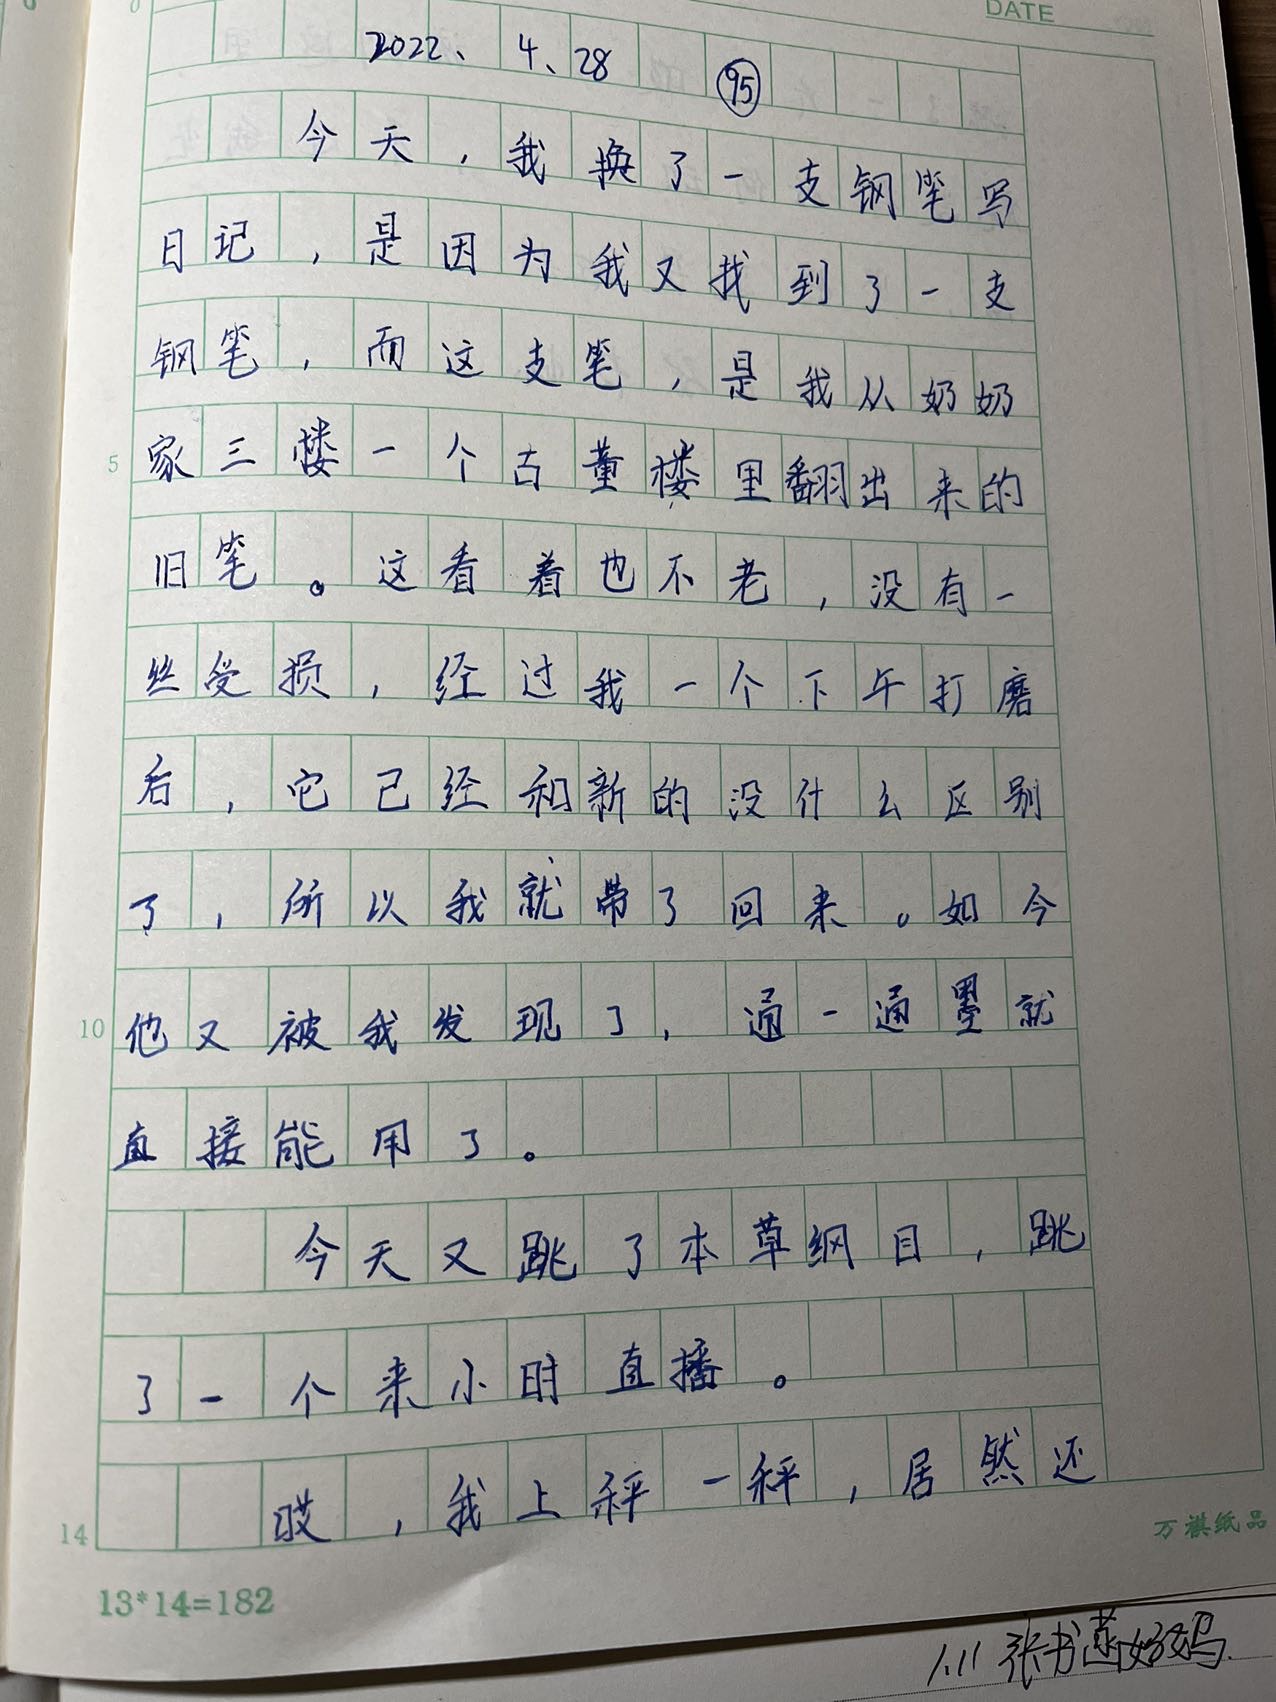 DATE
2022、4、28 95
今天，我换了一支钢笔写
日记，是因为我又找到了一支
钢笔，而这支笔，是我从奶奶
5 家三楼一个古董楼里翻出来的
旧笔。这看着也不老，没有一
丝受损，经过我一个下午打磨
后，它已经和新的没什么区别
了，所以我就带了回来。如今
10 他又被我发现了，通一通墨就
直接能用了。
今天又跳了本草纲目，跳
了一个来小时直播。
14 哎，我上秤一秤，居然还
万祺纸品
13*14=182
张书
妈